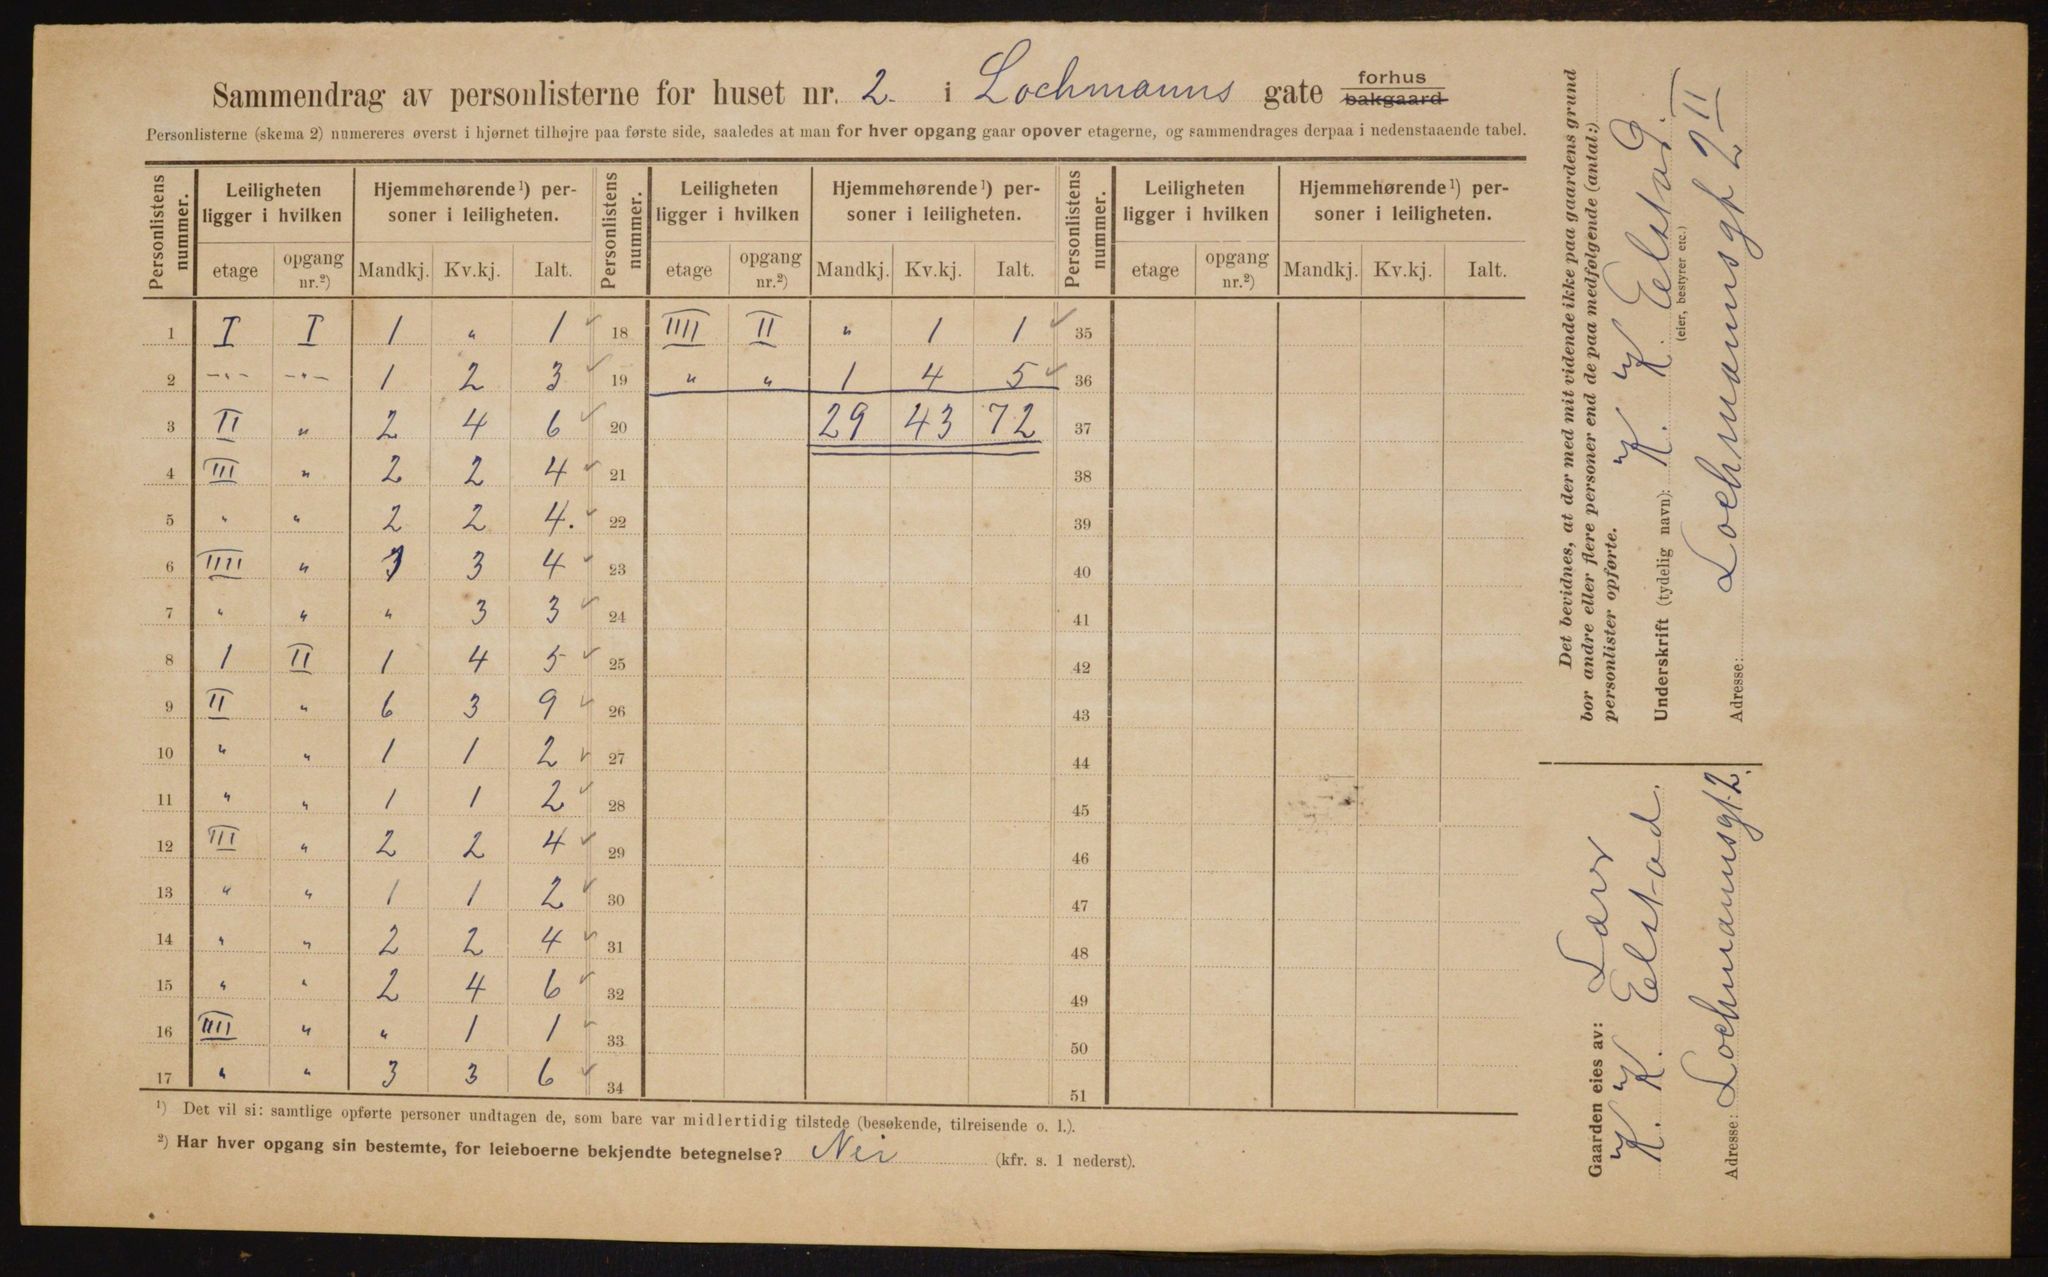 Sammendrag av personlisterne for huset nr. 2. i Lochmanns gate forhus bakgaard
Personlisterne (skema 2) numereres øverst i hjørnet tilhøjre paa første side, saaledes at man for hver opgang gaar opover etagerne, og sammendrages derpaa i nedenstaaende tabel.
Personlistens nummer. Leiligheten ligger i hvilken Hjemmehørende¹) personer i leiligheten. Personlistens nummer. Leiligheten ligger i hvilken Hjemmehørende¹) personer i leiligheten. Personlistens nummer. Leiligheten ligger i hvilken Hjemmehørende¹) personer i leiligheten.
etage opgang nr.²) Mandkj. Kv.kj. Ialt. etage opgang nr.²) Mandkj. Kv.kj. Ialt. etage opgang nr.²) Mandkj. Kv.kj. Ialt.
1 I I 1 „ 1 ✓ 18 IIII II „ 1 1 ✓ 35
2 -„- -„- 1 2 3 ✓ 19 „ „ 1 4 5 ✓ 36
3 II „ 2 4 6 ✓ 20 29 43 72 37
4 III „ 2 2 4 ✓ 21 38
5 „ „ 2 2 4. ✓ 22 39
6 IIII „ 3 4 ✓ 23 40
7 „ „ „ 3 3 ✓ 24 41
8 1 II 1 4 5 ✓ 25 42
9 II „ 6 3 9 ✓ 26 43
10 „ „ 1 1 2 ✓ 27 44
11 „ „ 1 1 2 ✓ 28 45
12 III „ 2 2 4 ✓ 29 46
13 „ „ 1 1 2 ✓ 30 47
14 „ „ 2 2 4 ✓ 31 48
15 „ „ 2 4 6 ✓ 32 49
16 IIII „ „ 1 1 ✓ 33 50
17 „ „ 3 3 6 ✓ 34 51
¹) Det vil si: samtlige opførte personer undtagen de, som bare var midlertidig tilstede (besøkende, tilreisende o. l.).
²) Har hver opgang sin bestemte, for leieboerne bekjendte betegnelse? Nei (kfr. s. 1 nederst).
Det bevidnes, at der med mit vidende ikke paa gaardens grund
bor andre eller flere personer end de paa medfølgende (antal:)
personlister opførte.
Underskrift (tydelig navn): K. K. Elstad.
(eier, bestyrer etc.)
Adresse: Lochmannsgt 2 II
Gaarden eies av:
K. K. Elstad.
Adresse: Lochmannsgt. 2.